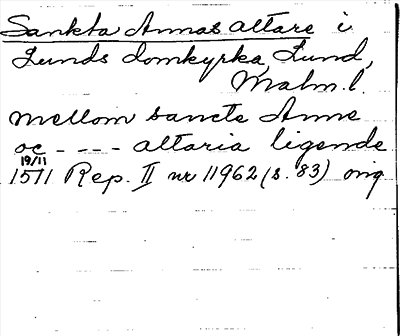 Sankta Annas altare i
Lunds domkyrka, Lund,
Malm.l.
mellom sancte Anne
oc - - - altaria ligende
19/11
1511 Rep. II nr 11962 (s. 83) orig